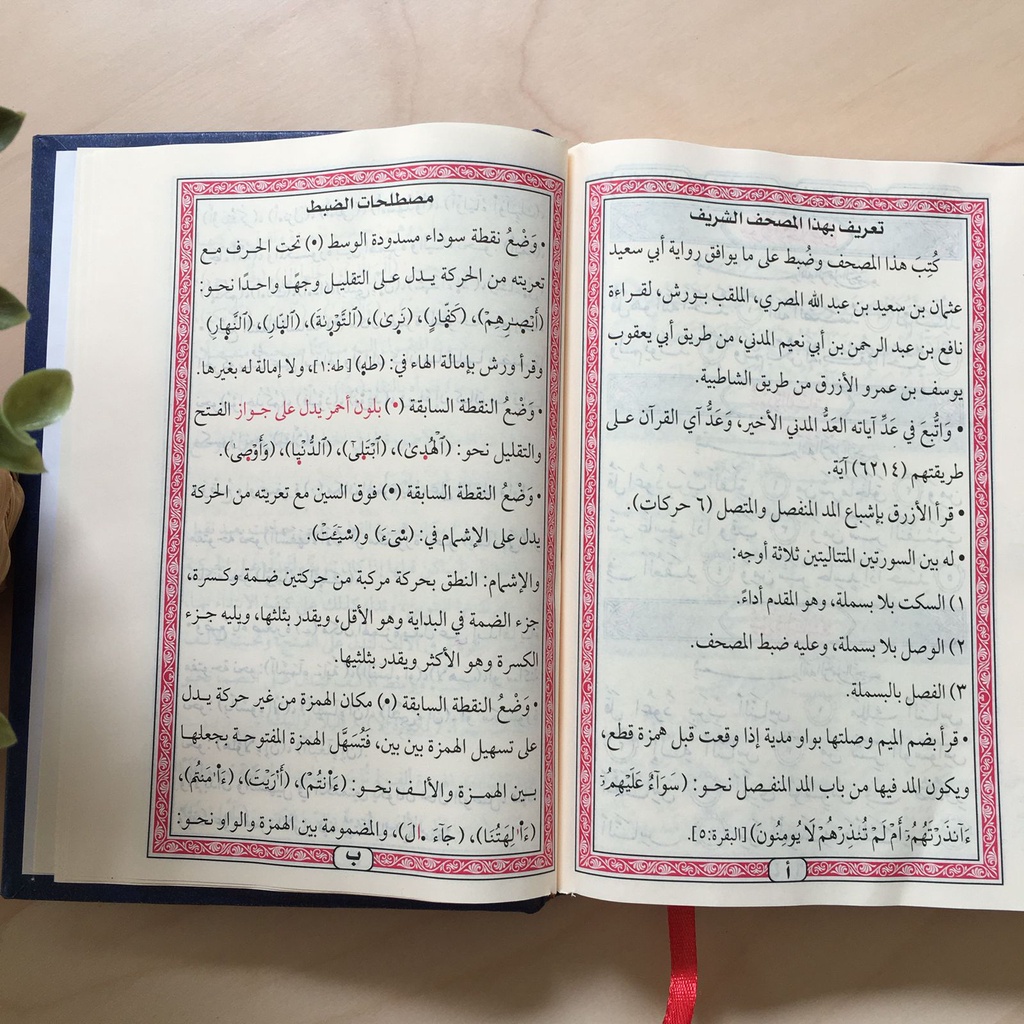 تعريف بهذا المصحف الشريف
كُتِبَ هذا المصحف وضُبط على ما يوافق رواية أبي سعيد
عثمان بن سعيد بن عبد الله المصري، الملقب بـورش، لقـراءة
نافع بن عبد الرحمن بن أبي نعيم المدني، من طريق أبي يعقوب
يوسف بن عمرو الأزرق من طريق الشاطبية.
• وَاتُّبِعَ في عَدِّ آياته العَدُّ المدني الأخير، وَعَدُّ آي القرآن عـلى
طريقتهم (٦٢١٤) آيَة.
• قرأ الأزرق بإشباع المد المنفصل والمتصل (٦ حركات).
• له بين السورتين المتتاليتين ثلاثة أوجه:
١) السكت بلا بسملة، وهو المقدم أداءً.
٢) الوصل بلا بسملة، وعليه ضبط المصحف.
٣) الفصل بالبسملة.
• قرأ بضم الميم وصلتها بواو مدية إذا وقعت قبل همزة قطع،
ويكون المد فيها من باب المد المنفـصل نحـو: (سَوَآءٌ عَلَيْهِمُۥٓ
ءَآنذَرْتَهُمُۥٓ أَمْ لَمْ تُنذِرْهُمْ لَا يُومِنُونَ) [البقرة:٥].
أ
مصطلحات الضبط
• وَضْعُ نقطة سوداء مسدودة الوسط (•) تحت الحـرف مـع
تعريته من الحركة يـدل عـلى التقليـل وجهًـا واحـدًا نحـو:
(أَبْصٰرِهِمْ)، (كَفّارٍ)، (نَرىٰ)، (اَلتَّوْرىٰةَ)، (اَلنّارِ)، (اَلنَّهارِ)
وقرأ ورش بإمالة الهاء في: (طه) [طه:١]، ولا إمالة له بغيرها.
• وَضْعُ النقطة السابقة (•) بلون أحمر يدل على جـواز الفـتح
والتقليل نحو: (اَلْهُدىٰ)، (اَبْتَلىٰ)، (اَلدُّنْيا)، (وَأَوْصىٰ).
• وَضْعُ النقطة السابقة (•) فوق السين مع تعريته من الحركة
يدل على الإشمام في: (سِیٓءَ) و(سِیٓـَٔتْ).
والإشمام: النطق بحركة مركبة من حركتين ضـمة وكـسرة،
جزء الضمة في البداية وهو الأقل، ويقدر بثلثها، ويليه جـزء
الكسرة وهو الأكثر ويقدر بثلثيها.
• وَضْعُ النقطة السابقة (•) مكان الهمزة من غير حركة يـدل
على تسهيل الهمزة بين بين، فَتُسَهَّل الهمزة المفتوحـة بجعلهـا
بـين الهمـزة والألـف نحـو: (ءَا۬نتُمْ)، (أَرَٰيْتَ)، (ءَا۬مَنتُم)،
(ءَا۬لِهَتُنَا)، (جَآءَ ا۬لَ)، والمضمومة بين الهمزة والواو نحو:
ب